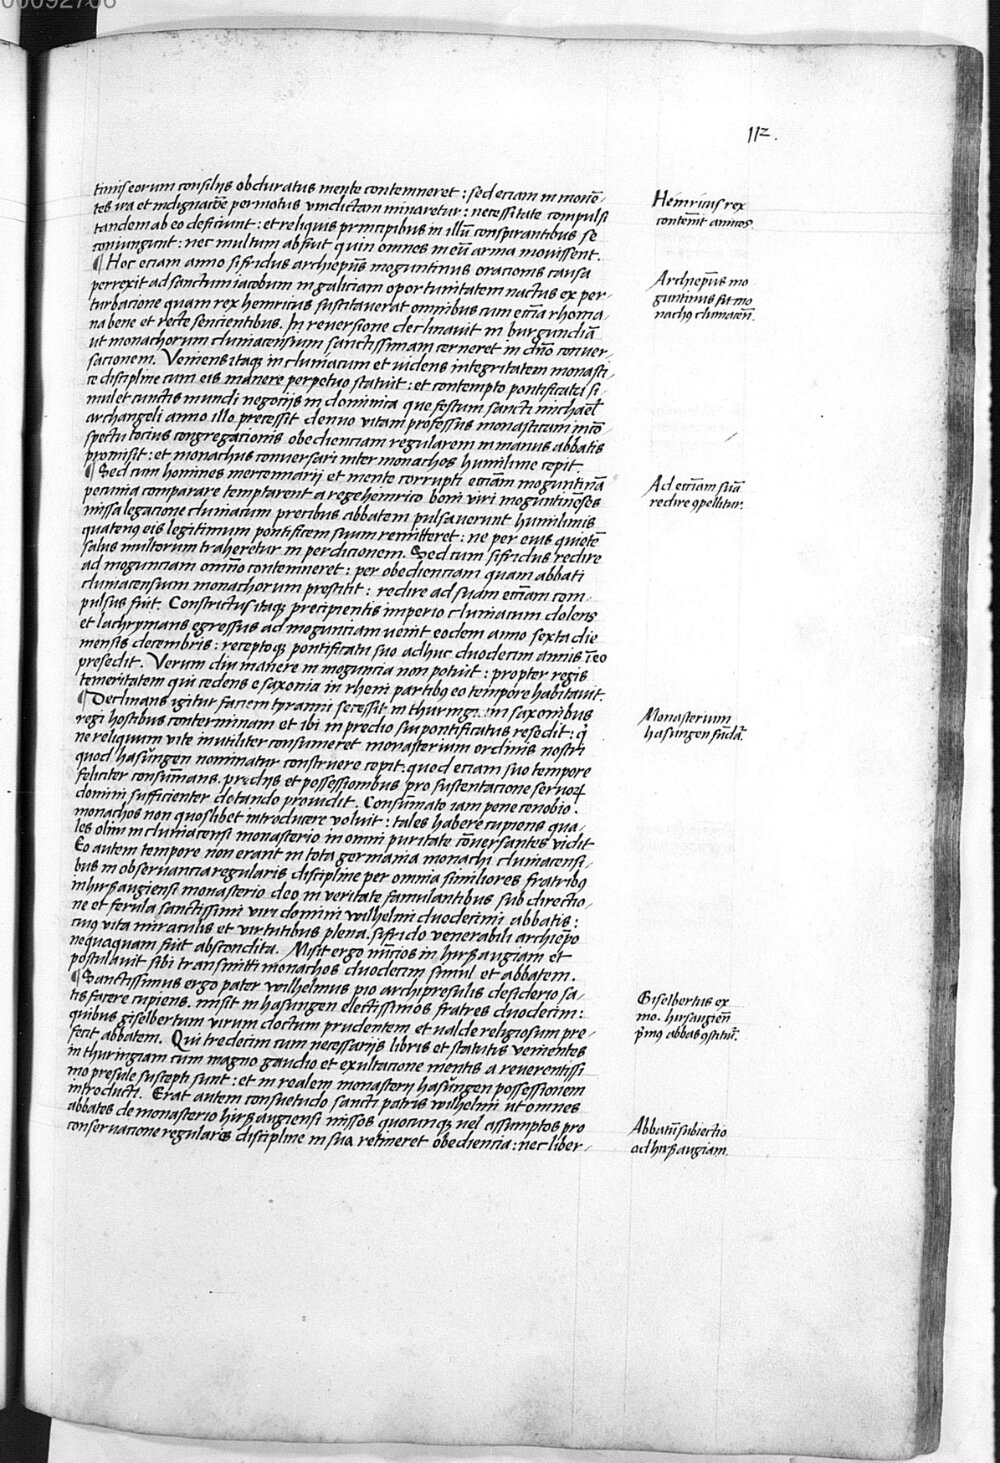 00092706
112.
timis eorum consilijs obduratus mente contemneret : sed eciam in monẽ-
tes ira et indignacõe permotus vindictam minaretur : necessitate compulsi
tandem ab eo deficiunt : et reliquis principibus in illũ conspirantibus se
coniungunt : nec multum abfuit quin omnes in eũ arma movissent.
¶ Hoc eciam anno sifridus archiepũs moguntinus oracionis causa
perrexit ad sanctum iacobum in galiciam oportunitatem nactus ex per-
turbacione quam rex heinricus suscitauerat omnibus cum ecc̃ia rhoma-
na bene et recte sencientibus. In reuersione declinauit in burgundiã
ut monachorum cluniacensium sanctissimam cerneret in dño conver-
sacionem. Veniens itaq; in cluniacum et videns integritatem monasti-
ce discipline cum eis manere perpetuo statuit : et contempto pontificatu si-
mul et cunctis mundi negocijs in dominica que festum sancti michael'
archangeli anno illo precessit denuo vitam professus monasticam in cõ
spectu tocius congregacionis obedienciam regularem in manus abbatis
promisit : et monachus conversari inter monachos humilime cepit.
¶ Sed cum homines mercennarij et mente corrupti ecc̃iam moguntinã
pecunia comparare temptarent a rege heinrico boni viri moguntinẽses
missa legacione cluniacum precibus abbatem pulsauerunt humilimis
quatenus eis legitimum pontificem suum remitteret : ne per eius quietẽ
salus multorum traheretur in perdicionem. Sed cum sifridus redire
ad mogunciam omñio contemneret : per obedienciam quam abbati
cluniacensium monachorum prestitit : redire ad suam ecc̃iam com-
pulsus fuit. Constrictus itaq; precipientis imperio cluniacum dolens
et lachrymans egressus ad mogunciam uenit eodem anno sexta die
mensis decembris : receptoq; pontificatu suo adhuc duodecim annis ĩ eo
presedit. Verum diu manere in moguncia non potuit : propter regis
temeritatem qui cedens e saxonia in rheni partibus eo tempore habitauit.
¶ Declinans igitur faciem tyranni secessit in thuringiam saxonibus
regi hostibus conterminam et ibi in predio sui pontificatus resedit : q̃
ne reliquum vite inutiliter consumeret monasterium ordinis nostri
quod hasũngen nominatur construere cepit : quod eciam suo tempore
feliciter consum̃ans. predijs et possessionibus pro sustentacione seruoꝝ
domini sufficienter dotando prouidit. Consum̃ato iam pene cenobio.
monachos non quoslibet introducere voluit : tales habere cupiens qua-
les olim in cluniacensi monasterio in omni puritate cõversantes vidit
Eo autem tempore non erant in tota germania monachi cluniacensi-
bus in observancia regularis discipline per omnia similiores fratribus
in hirsaugiensi monasterio deo in veritate famulantibus sub directio-
ne et ferula sanctissimi viri domini wilhelmi duodecimi abbatis :
cuius vita miraculis et virtutibus plena. sifrido venerabili archiep̃o
nequaquam fuit abscondita. Misit ergo nũcios in hirsaugiam et
postulauit sibi transmitti monachos duodecim simul et abbatem.
¶ Sanctissimus ergo pater wilhelmus pio archipresulis desiderio sa-
tis facere cupiens. misit in hasungen electissimos fratres duodecim :
quibus giselbertum virum doctum prudentem et ualde religiosum pre-
fecit abbatem. Qui tredecim cum necessarijs libris et statutis venientes
in thuringiam cum magno gaudio et exultacione mentis a reuerentissi
mo presule suscepti sunt : et in realem monasterij hasũngen possessionem
introducti. Erat autem consuetudo sancti patris wilhelmi ut omnes
abbates de monasterio hirsaugiensi missos quocunq; vel assumptos pro
conservacione regularis discipline in sua retineret obediencia : nec liber-
Heinricus rex
contem̃it amicos
Archiepũs mo
guntinus fit mo
nachus cluniaceñ.
Ad ecc̃iam suã
redire ꝯpellitur.
Monasterium
hasungen fũdat'.
Giselbertus ex
mo. hirsaugieñ
p̃mus abbas ꝯstituit'.
Abbatũ subiectio
ad hirsaugiam.